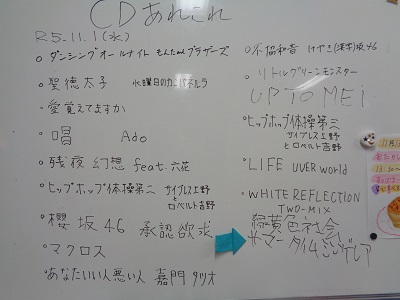 CDあれこれ
R5.11.1(水)
ダンシングオールナイト もんたよしのりブラザーズ
聖徳太子 水曜日のカンパネルラ
愛覚えてますか
唱 Ado
残夜幻想 feat. 六花
ヒップホップ体操第二 サイプレス上野
と
ロベルト吉野
櫻坂46 承認欲求
マクロス
あなたいい人悪い人 嘉門タツオ
不協和音 けやき(欅)坂46
リトルグリーンモンスター
UP TO ME!
ヒップホップ体操第二
サイプレス上野
とロベルト吉野
LIFE UVERworld
WHITE REFLECTION
TWO-MIX
緑黄色社会
サマータイムシンデレラ
11月